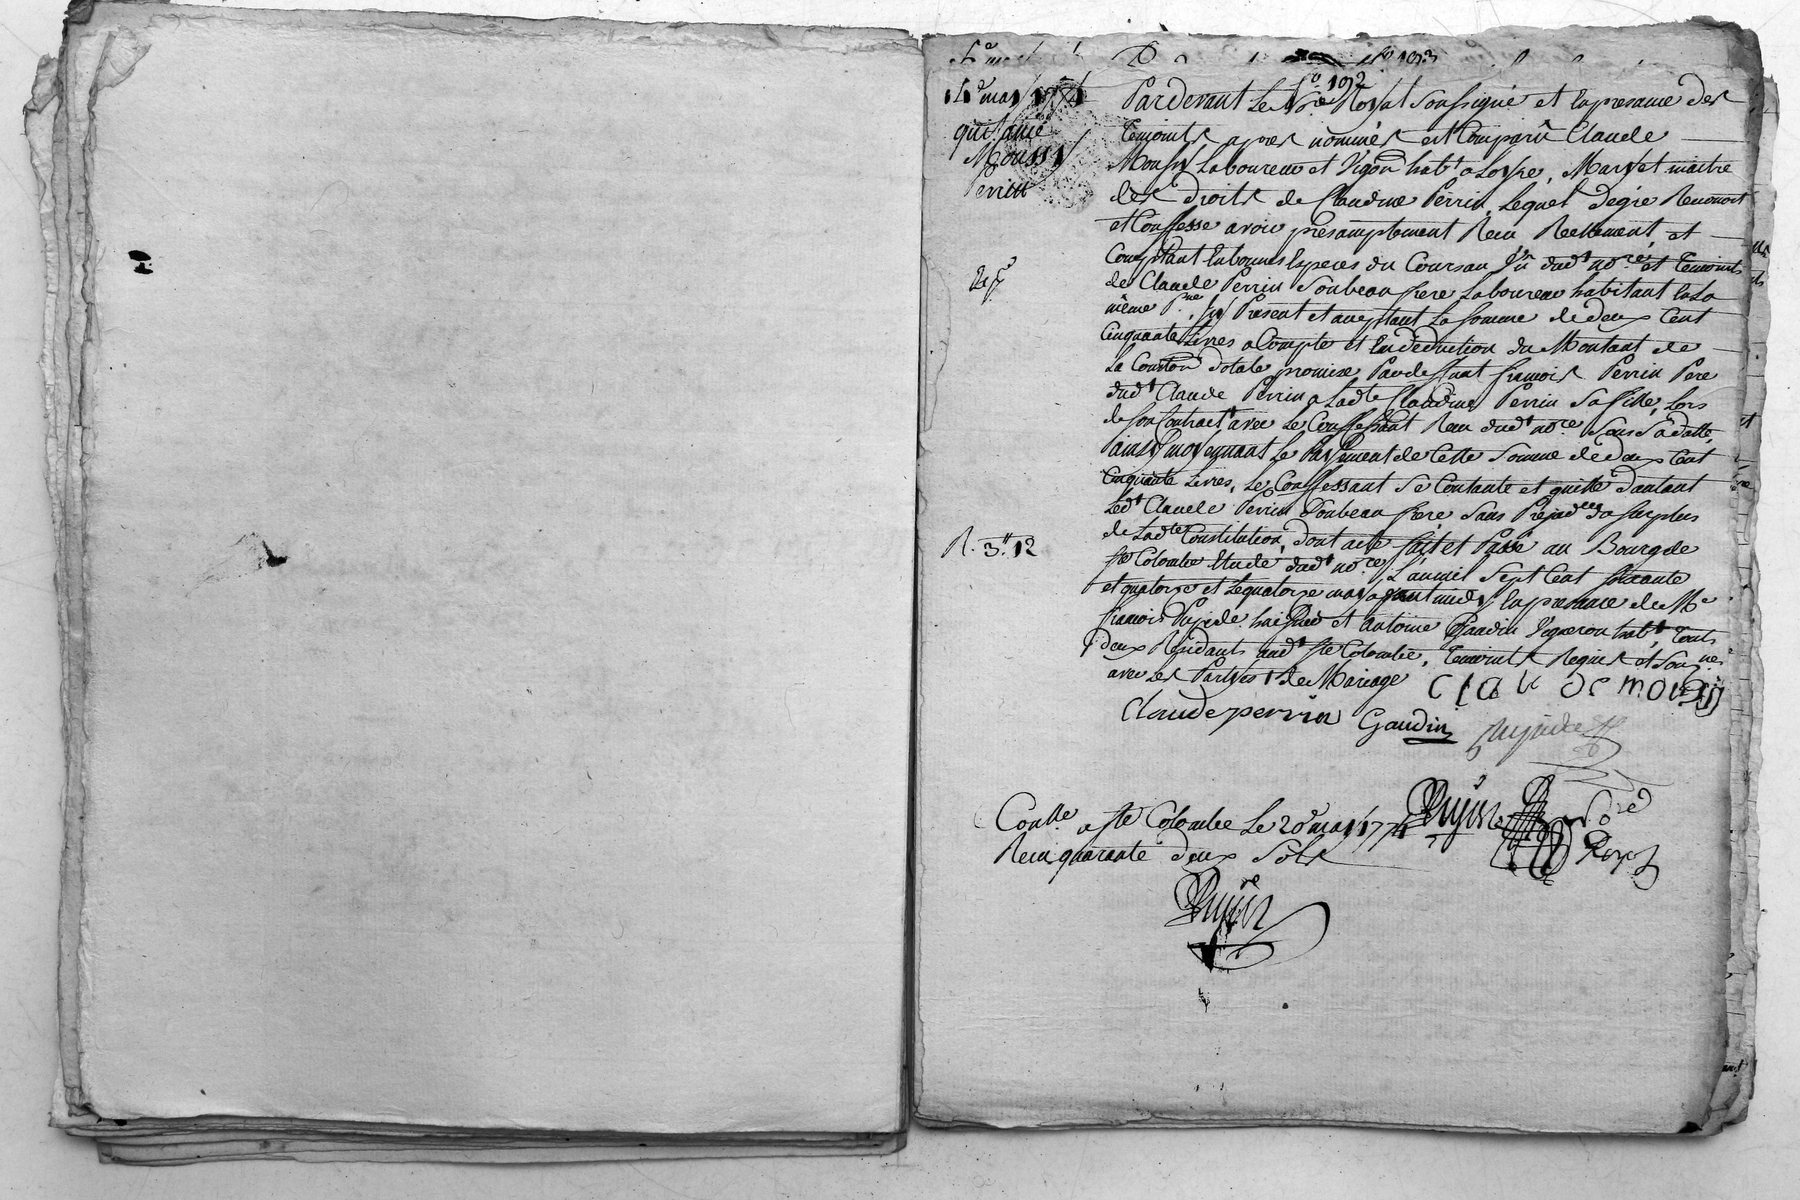 14e may 1774
quittance
Moussy
Perrin
Nº 192
Pardevant Le No.re Royal Soussigné et En presance des
Temoints apres nommés est Comparû Claude
Moussy Laboureur et Vigon habt a Loyre, Mary et maitre
des droits de Claudine Perrin, Lequel de gré Reconnoit
et Confesse avoir presamptement Recu Reellement et
Comptant En bonnes Especes du Coursau dudt no.re et Temoints
de Claude Perrin Son beau frere Laboureur habitant En La
même P.sse, Icy Present et aceptant La Somme de deux Cent
Cinquante Livres a Compte et En deduction du Montant de
La Conston dotale promise Par deffunt francois Perrin Pere
dudt Claude Perrin a Ladte Claudine Perrin Sa fille, Lors
de Son Contract avec Le Confessant Recu dudt no.re Sous Sa datte,
Painsy moyennant Le Payement de Cette Somme de deux Cent
Cinquante Livres, Le Confessant Se Contante et quitte dautant
Ledt Claude Perrin Son beau frere Sans Prejudice du Surplus
de Ladte Constitution, dont acte fait et Passé au Bourg de
Ste Colombe Etude dudt no.re, L'an mil Sept Cent Soixante
et quatorze et Le quatorze may avant midy En presance de Me
francois Pupide huissier et Antoine Gaudin Vigneron habt, Touts
deux Residants audt Ste Colombe, Temoints Requis et Soug.nés
avec Les Partyes de Mariage
R. 3.ll 12
claude moussy
Claude perrin Gaudin
Conlle a Ste Colombe Le 20e may 1774
Recu quarante deux Sols
No.re
Royal